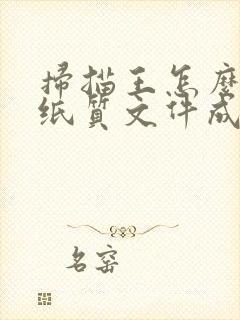 掃描王怎麼
纸質文件成
名窑